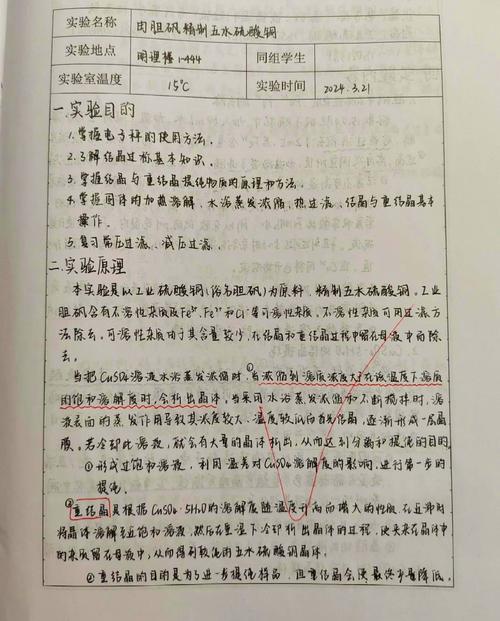 实验名称 由胆矾精制五水硫酸铜
实验地点 明理楼1-444 同组学生
实验室温度 15℃ 实验时间 2024.3.21
一 实验目的
1.掌握电子秤的使用方法。
2.了解结晶过标基本知识。
3.掌握结晶与重结晶提纯物质的原理和方法。
4.掌握固体的加热溶解、水浴蒸发浓缩、热过滤、结晶与重结晶基本
操作。
5.复习常压过滤、减压过滤。
二.实验原理
本实验是以工业硫酸铜(俗名胆矾)为原料,精制五水硫酸铜。工业
胆矾含有不溶性杂质及Fe²⁺、Fe³⁺和Cl⁻等可溶性杂质,不溶性杂质可用过滤方
法除去,可溶性杂质由于其含量较少,在结晶和重结晶过程中留在母液中而除
去。
当把CuSO₄溶液水浴蒸发浓缩时,①当浓缩到溶质浓度大于在该温度下溶质
的饱和溶解度时,会析出晶体,当采用水浴蒸发浓缩和不断搅拌时,溶
液表面的蒸发作用导致其浓度较大、温度较低而首先结晶,逐渐形成一层晶
膜。若冷却此溶液,就会有大量的晶体析出,从而达到分离和提纯的目的
①形成过饱和溶液,利用温差对CuSO₄溶解度的影响,进行第一步的
提纯。
②重结晶是根据CuSO₄·5H₂O的溶解度随温度升高而增大的性质,在近沸时
将晶体溶解至近饱和溶液,然后在室温下冷却析出晶体的过程,使夹杂在晶体中
的杂质留在母液中,从而得到较纯的五水硫酸铜晶体。
②重结晶的目的是为了进一步提纯样品,且重结晶会使最终产量降低。